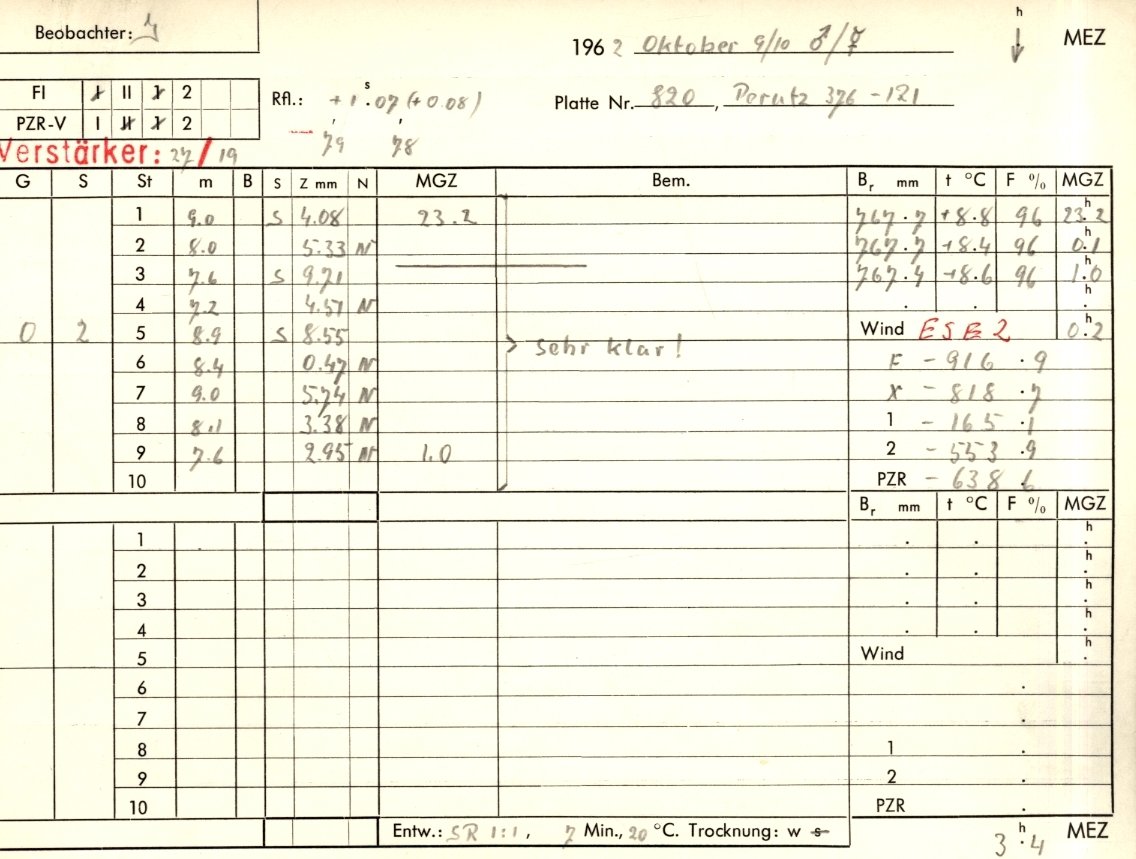 Beobachter:
1962 Oktober 9/10 ♂/☿ h MEZ
FI I II 1 2
PZR-V I II 1 2
Rfl.: + 1 s . 07 (+0.08)
79 78
Platte Nr. 820, Perutz 376 - 121
Verstärker: 27/19
G S St m B S Z mm N MGZ Bem. Br mm t °C F % MGZ
1 9.0 S 4.08 23.2 767.7 +8.8 96 23.2 h
2 8.0 5.33 N 767.7 +8.4 96 0.1 h
3 7.6 S 9.71 767.4 +8.6 96 1.0 h
4 7.2 4.51 N . . . h
0 2 5 8.9 S 8.55 sehr klar! Wind ESE 2 0.2 h
6 8.4 0.47 N F - 916 .9
7 9.0 5.74 N X - 818 .7
8 8.1 3.38 N 1 - 165 .1
9 7.6 2.95 N 1.0 2 - 553 .9
10 PZR - 638 6
Br mm t °C F % MGZ
1 . . . h
2 . . . h
3 . . . h
4 . . . h
5 Wind . h
6 .
7 .
8 1 .
9 2 .
10 PZR .
Entw.: SR 1:1, 7 Min., 20 °C. Trocknung: w s
3 h . 4 MEZ